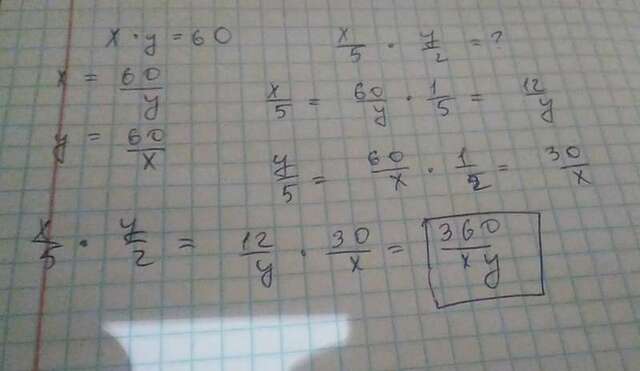 x · y = 60
x/5 · y/2 = ?
x = 60/y
x/5 = 60/y · 1/5 = 12/y
y = 60/x
y/5 = 60/x · 1/2 = 30/x
x/5 · y/2 = 12/y · 30/x = 360/xy